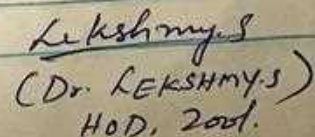 Lekshmy.S
(Dr. LEKSHMY.S)
HOD, Zool.